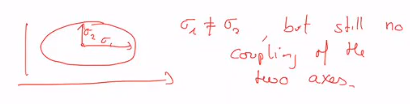 σ₂ σ₁
σ₁ ≠ σ₂, but still no
coupling of the
two axes.